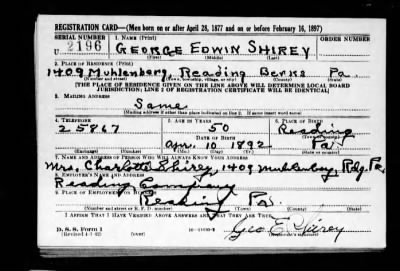 REGISTRATION CARD—(Men born on or after April 28, 1877 and on or before February 16, 1897)
SERIAL NUMBER 1. NAME (Print) ORDER NUMBER
U 2196 GEORGE EDWIN SHIREY
(First) (Middle) (Last)
2. PLACE OF RESIDENCE (Print)
1409 Muhlenberg, Reading Berks Pa.
(Number and street) (Town, township, village, or city) (County) (State)
[THE PLACE OF RESIDENCE GIVEN ON THE LINE ABOVE WILL DETERMINE LOCAL BOARD
JURISDICTION; LINE 2 OF REGISTRATION CERTIFICATE WILL BE IDENTICAL]
3. MAILING ADDRESS
Same
(Mailing address if other than place indicated on line 2. If same insert word same)
4. TELEPHONE 5. AGE IN YEARS 6. PLACE OF BIRTH
25867 50 Reading
DATE OF BIRTH (Town or county)
Apr. 10 1892 Pa.
(Exchange) (Number) (Mo.) (Day) (Yr.) (State or country)
7. NAME AND ADDRESS OF PERSON WHO WILL ALWAYS KNOW YOUR ADDRESS
Mrs. Charlotte Shirey, 1409 Muhlenberg, Rdg. Pa.
8. EMPLOYER'S NAME AND ADDRESS
Reading Company
9. PLACE OF EMPLOYMENT OR BUSINESS
Reading Pa.
(Number and street or R. F. D. number) (Town) (County) (State)
I AFFIRM THAT I HAVE VERIFIED ABOVE ANSWERS AND THAT THEY ARE TRUE.
D. S. S. Form 1 Geo E. Shirey
(Revised 4-1-42) (over) (Registrant's signature)